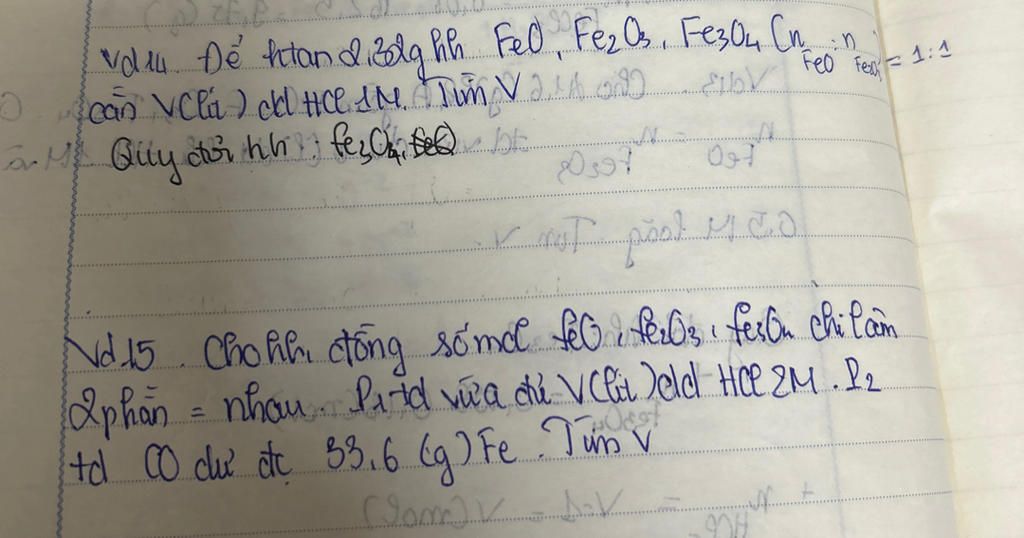 Vd14. Để htan 2,32g hh FeO, Fe2O3, Fe3O4 (n FeO : n Fe2O3 = 1:1
cần V(lít) dd HCl 1M. Tìm V
Quy đổi hh : Fe3O4, FeO
Vd15. Cho hh đồng số mol FeO, Fe2O3, Fe3O4 chi làm
2 phần = nhau. P1 td vừa đủ V(lít) dd HCl 2M. P2
td CO dư đc 33,6 (g) Fe. Tìm V